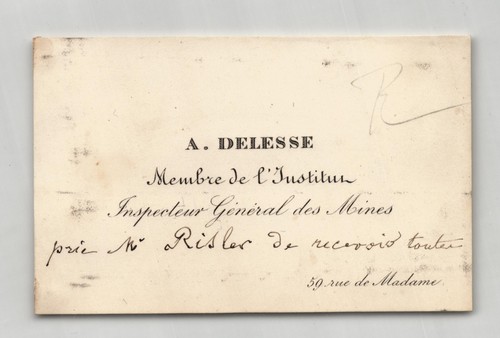 R.
A. DELESSE
Membre de l'Institut
Inspecteur Général des Mines
prie Mr Risler de recevoir toutes
59, rue de Madame.